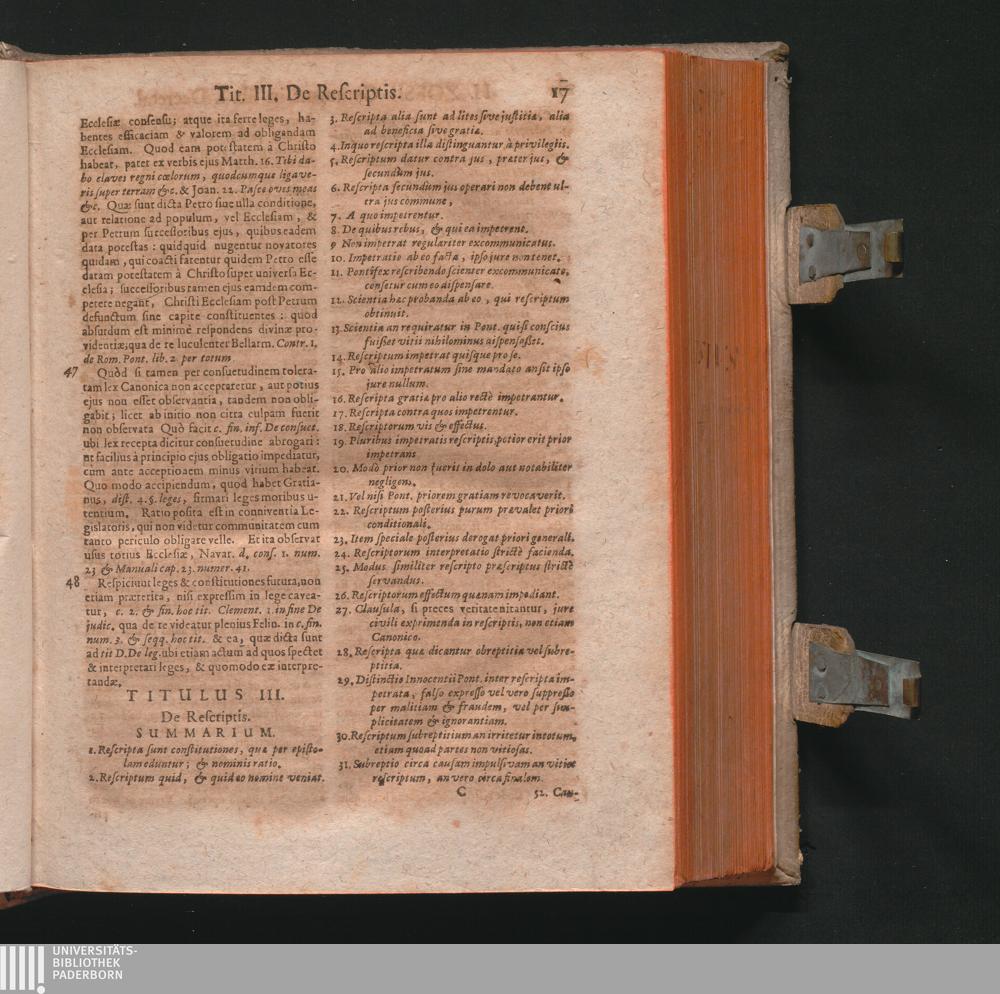 Tit. III. De Reſcriptis. 17
Eccleſiæ conſenſu; atque ita ferre leges, ha-
bentes efficaciam & valorem ad obligandam
Eccleſiam. Quod eam poteſtatem à Chriſto
habeat, patet ex verbis ejus Matth. 16. Tibi da-
bo claves regni cœlorum, quodcumque ligave-
ris ſuper terram &c. & Joan. 22. Paſce oves meas
&c. Quæ ſunt dicta Petro ſine ulla conditione,
aut relatione ad populum, vel Eccleſiam, &
per Petrum ſucceſſoribus ejus, quibus eadem
data poteſtas: quidquid nugentur novatores
quidam, qui coacti fatentur quidem Petro eſſe
datam poteſtatem à Chriſto ſuper universa Ec-
cleſia; ſucceſſoribus tamen ejus eamdem com-
petere negant, Chriſti Eccleſiam poſt Petrum
defunctum ſine capite conſtituentes: quod
abſurdum eſt minimè reſpondens divinæ pro-
videntiæ; qua de re luculenter Bellarm. Contr. 1.
de Rom. Pont. lib. 2. per totum
47 Quòd ſi tamen per conſuetudinem tolera-
tam lex Canonica non acceptaretur, aut potius
ejus non eſſet obſervantia, tandem non obli-
gabit; licet ab initio non citra culpam fuerit
non obſervata Quò facit c. fin. inf. De conſuet.
ubi lex recepta dicitur conſuetudine abrogari:
ut facilius à principio ejus obligatio impediatur,
cùm ante acceptioaem minus virium habeat.
Quo modo accipiendum, quod habet Gratia-
nus, diſt. 4. §. leges, firmari leges moribus u-
tentium. Ratio poſita eſt in conniventia Le-
gislatoris, qui non videtur communitatem cum
tanto periculo obligare velle. Et ita obſervat
uſus totius Eccleſiæ, Navar. d. conſ. 1. num.
23 & Manuali cap. 23. numer. 41.
48 Reſpiciunt leges & conſtitutiones futura, non
etiam præterita, niſi expreſſim in lege cavea-
tur, c. 2. & fin. hoc tit. Clement. 1. in fine De
judic. qua de re videatur plenius Felin. in c. fin.
num. 3. & ſeqq. hoc tit. & ea, quæ dicta ſunt
ad tit D. De leg. ubi etiam actum ad quos ſpectet
& interpretari leges, & quomodo eæ interpre-
tandæ.
TITULUS III.
De Reſcriptis.
SUMMARIUM.
1. Reſcripta ſunt conſtitutiones, quæ per epiſto-
lam eduntur; & nominis ratio.
2. Reſcriptum quid, & quid eo nomine veniat.
3. Reſcripta alia ſunt ad lites ſive juſtitiæ, alia
ad beneficia ſive gratiæ.
4. In quo reſcripta illa diſtinguantur à privilegiis.
5. Reſcriptum datur contra jus, præter jus, &
ſecundùm jus.
6. Reſcripta ſecundùm jus operari non debent ul-
tra jus commune,
7. A quo impetrentur.
8. De quibus rebus, & qui ea impetrent.
9 Non impetrat regulariter excommunicatus.
10. Impetratio ab eo facta, ipſo jure non tenet.
11. Pontifex reſcribendo ſcienter excommunicato,
cenſetur cum eo diſpenſare.
12. Scientia hæc probanda ab eo, qui reſcriptum
obtinuit.
13. Scientia an requiratur in Pont. quiſi conſcius
fuiſſet vitii nihilominus diſpenſaſſet.
14. Reſcriptum impetrat quiſque pro ſe.
15. Pro alio impetratum ſine mandato an ſit ipſo
jure nullum.
16. Reſcripta gratiæ pro alio rectè impetrantur.
17. Reſcripta contra quos impetrentur.
18. Reſcriptorum vis & effectus.
19. Pluribus impetratis reſcriptis, potior erit prior
impetrans
20. Modò prior non fuerit in dolo aut notabiliter
negligens.
21. Vel niſi Pont. priorem gratiam revocaverit.
22. Reſcriptum poſterius purum prævalet priori
conditionali.
23. Item ſpeciale poſterius derogat priori generali.
24. Reſcriptorum interpretatio ſtrictè facienda.
25. Modus ſimiliter reſcripto præſcriptus ſtrictè
ſervandus.
26. Reſcriptorum effectum quænam impediant.
27. Clauſula, ſi preces veritate nitantur, jure
civili exprimenda in reſcriptis, non etiam
Canonico.
28. Reſcripta quæ dicantur obreptitia vel ſubre-
ptitia.
29. Diſtinctio Innocentii Pont. inter reſcripta im-
petrata, falſo expreſſo vel vero ſuppreſſo
per malitiam & fraudem, vel per ſim-
plicitatem & ignorantiam.
30. Reſcriptum ſubreptitium an irritetur in totum,
etiam quoad partes non vitioſas.
31. Subreptio circa cauſam impulſivam an vitiet
reſcriptum, an vero circa finalem.
C 52. Cau-
UNIVERSITÄTS-
BIBLIOTHEK
PADERBORN